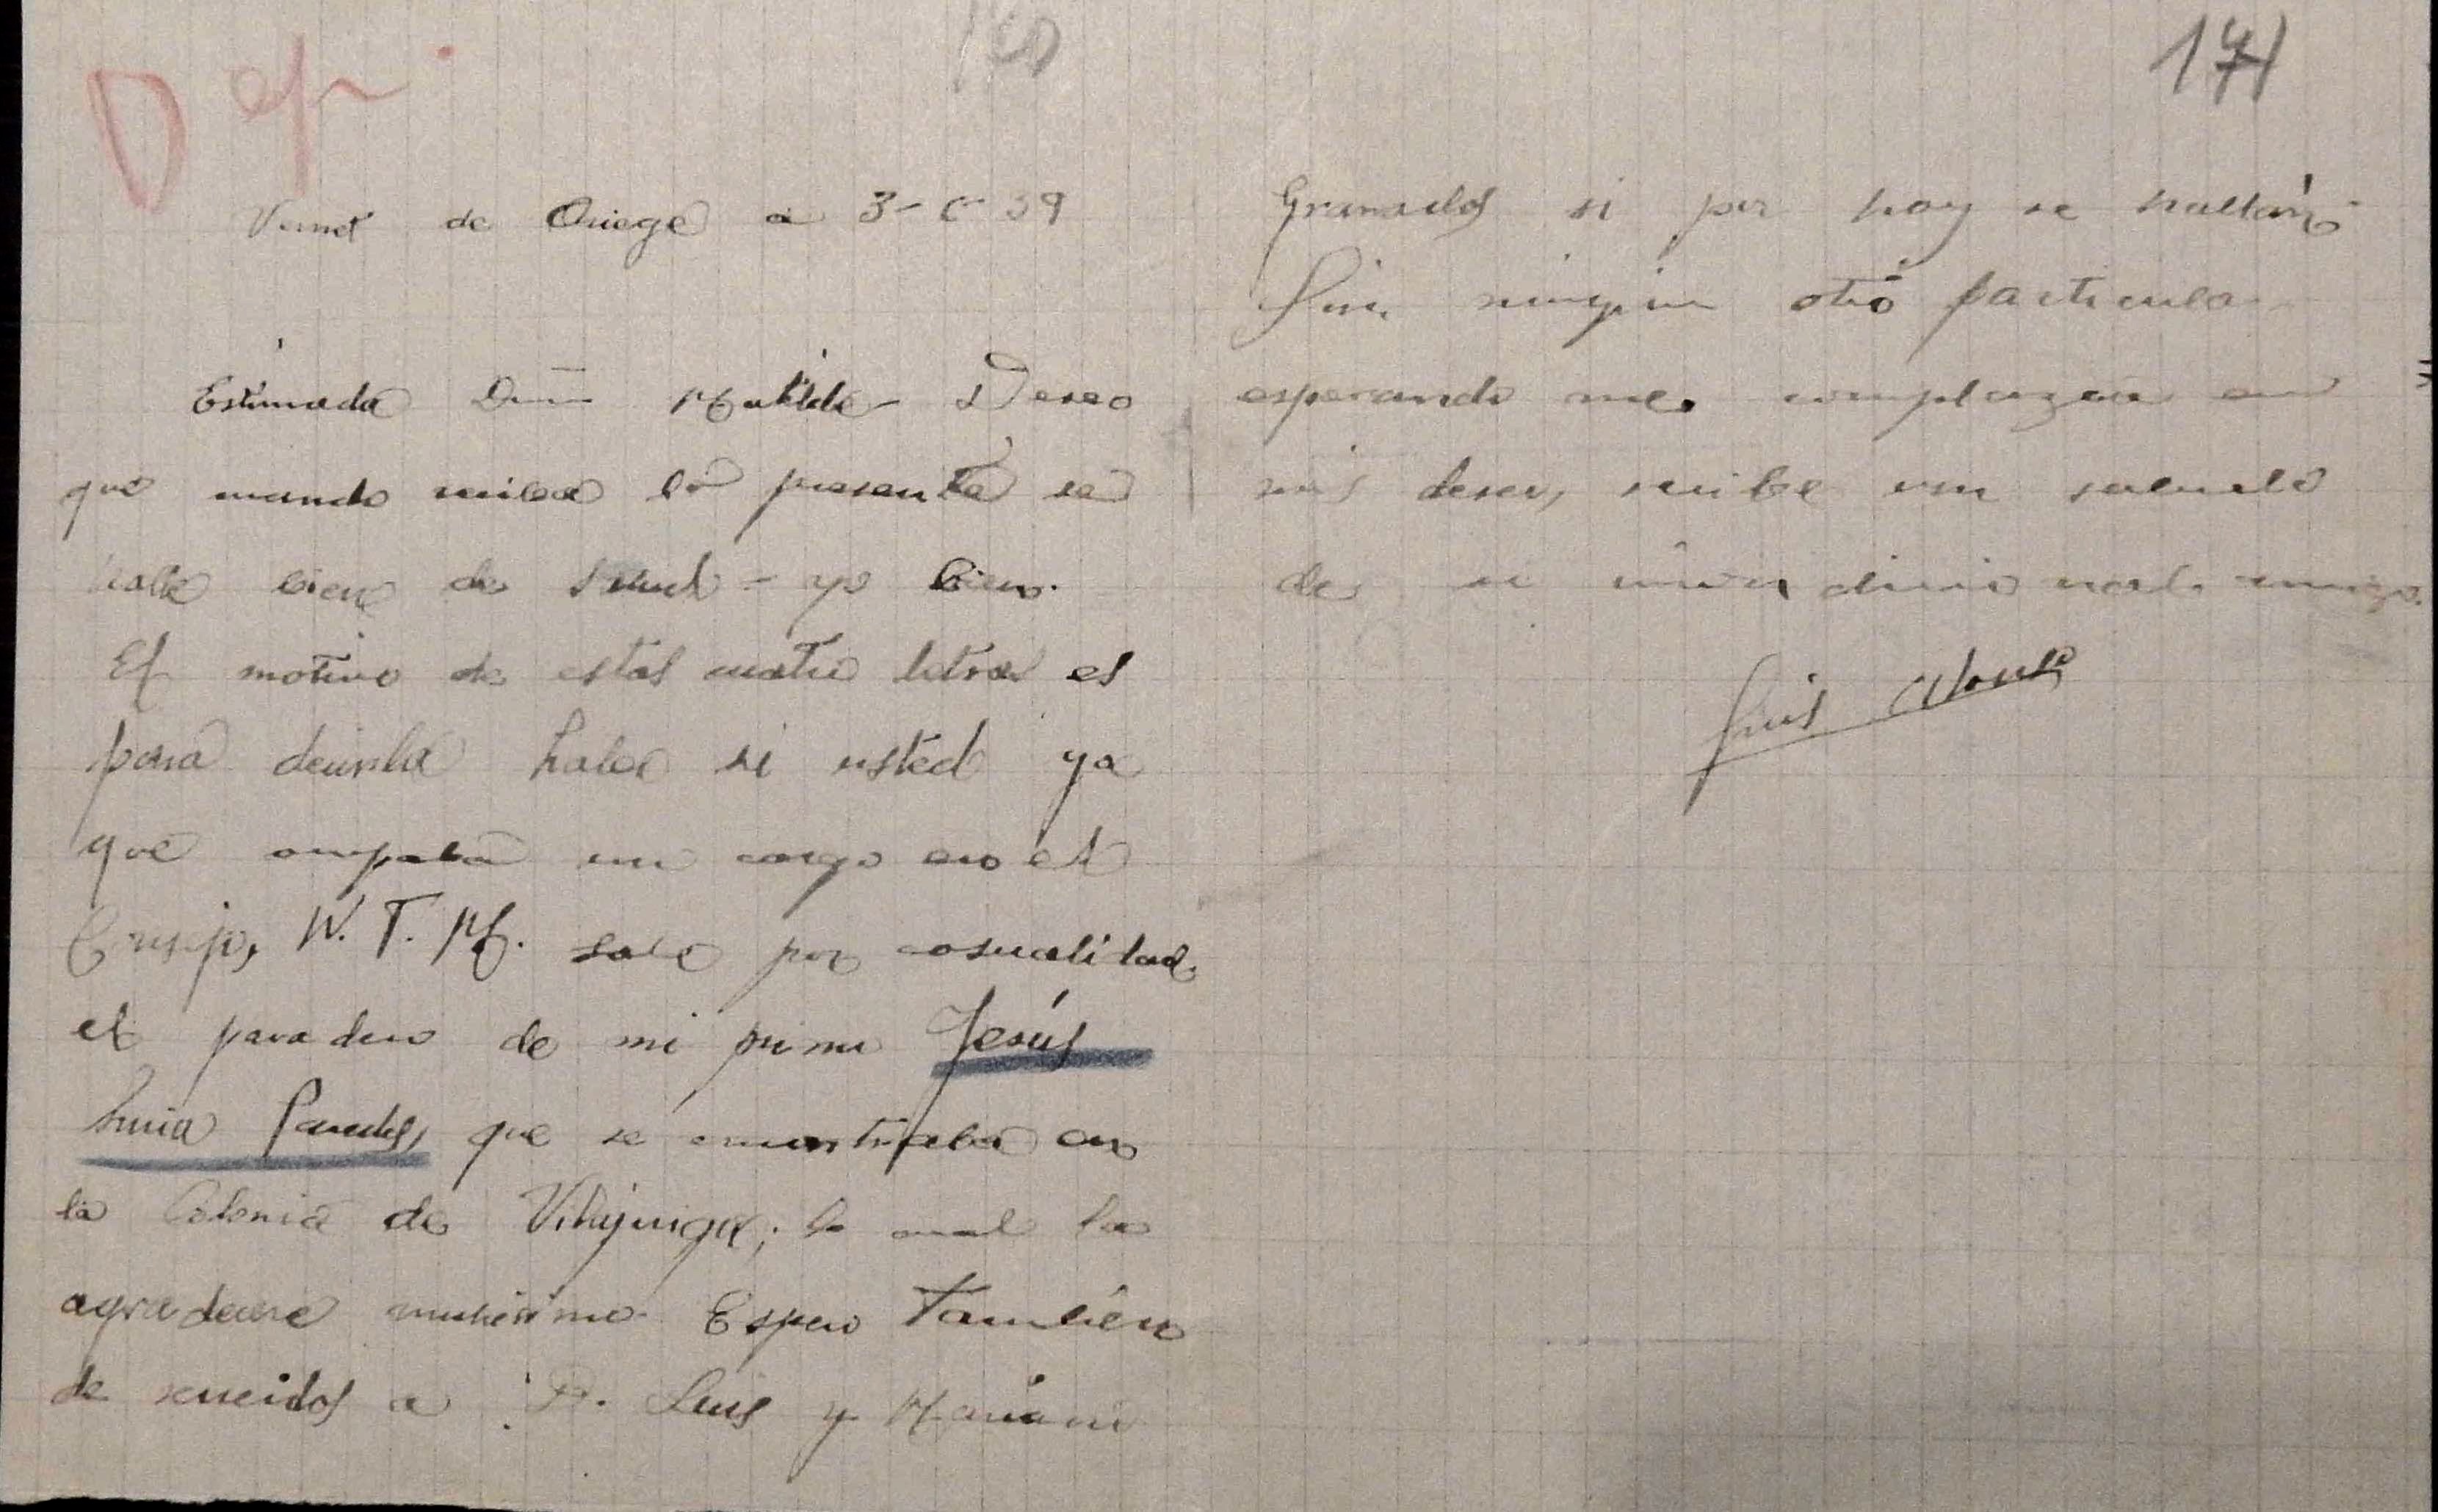 171
Vernet de Ariege a 3-6-39
Estimada Dña Matilde Deseo
que cuando reciba la presente se
halle bien de salud - yo bien.
El motivo de estas cuatro letras es
para decirla haber si usted ya
que ocupaba un cargo en el
Consejo, N. T. M. sabe por casualidad
el paradero de mi primo Jesús
Luria Paredes, que se encontraba en
la Colonia de Vilajuiga; lo cual la
agradecere muchisimo. Espero tambien
de recuerdos a D. Luis y Mariano
Granados si por hay se hallan
Sin ningun otro particular
esperando me complazca en
mis deseos, recibe un saludo
de su
Luis Alonso